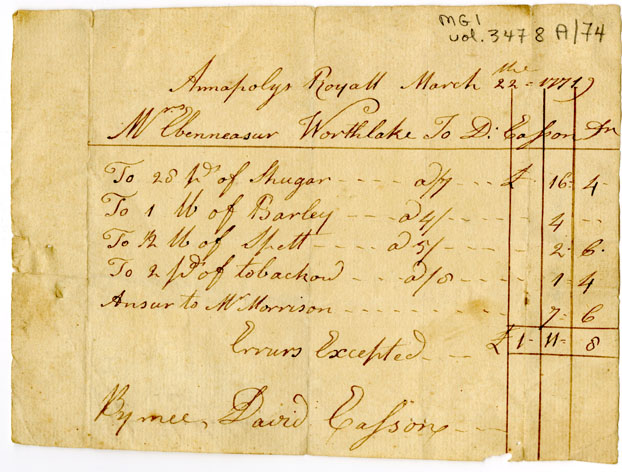 MG1
vol. 3478 A/74
Annapolys Royall March 22the = 1779
Mrs Ebenneasur Worthlake To D: Easson Dr
To 28 pds of Shugar - - - - a/7 - - £ 16 = 4 -
To 1 lb of Barley - - - - a 4/ - - - - 4 - -
To 1/2 lb of Spelt - - - - a 5/ - - - - 2 - 6 -
To 2 pds of tobackow - - - a/8 - - - - 1 - 4
Ansur to Mr Morrison - - - - - - - - 7 = 6
Errurs Excepted - - - £ 1 - 11 - 8
By mee David Easson - - -